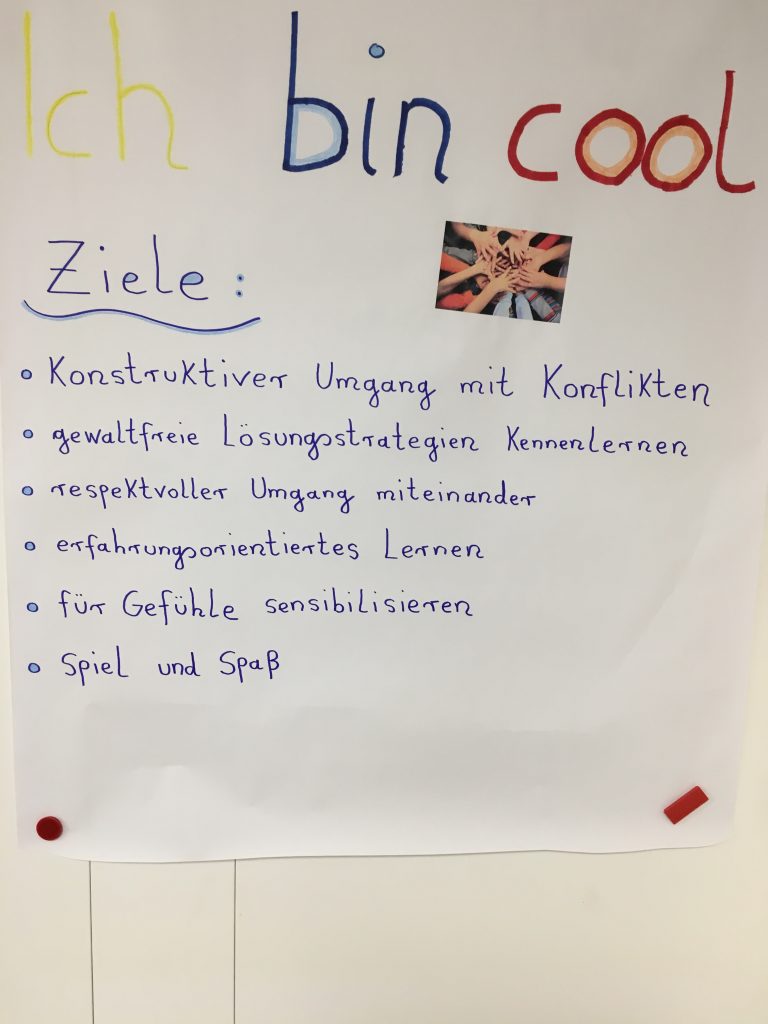 Ich bin cool
Ziele:
• Konstruktiver Umgang mit Konflikten
• gewaltfreie Lösungsstrategien Kennenlernen
• respektvoller Umgang miteinander
• erfahrungsorientiertes Lernen
• für Gefühle sensibilisieren
• Spiel und Spaß